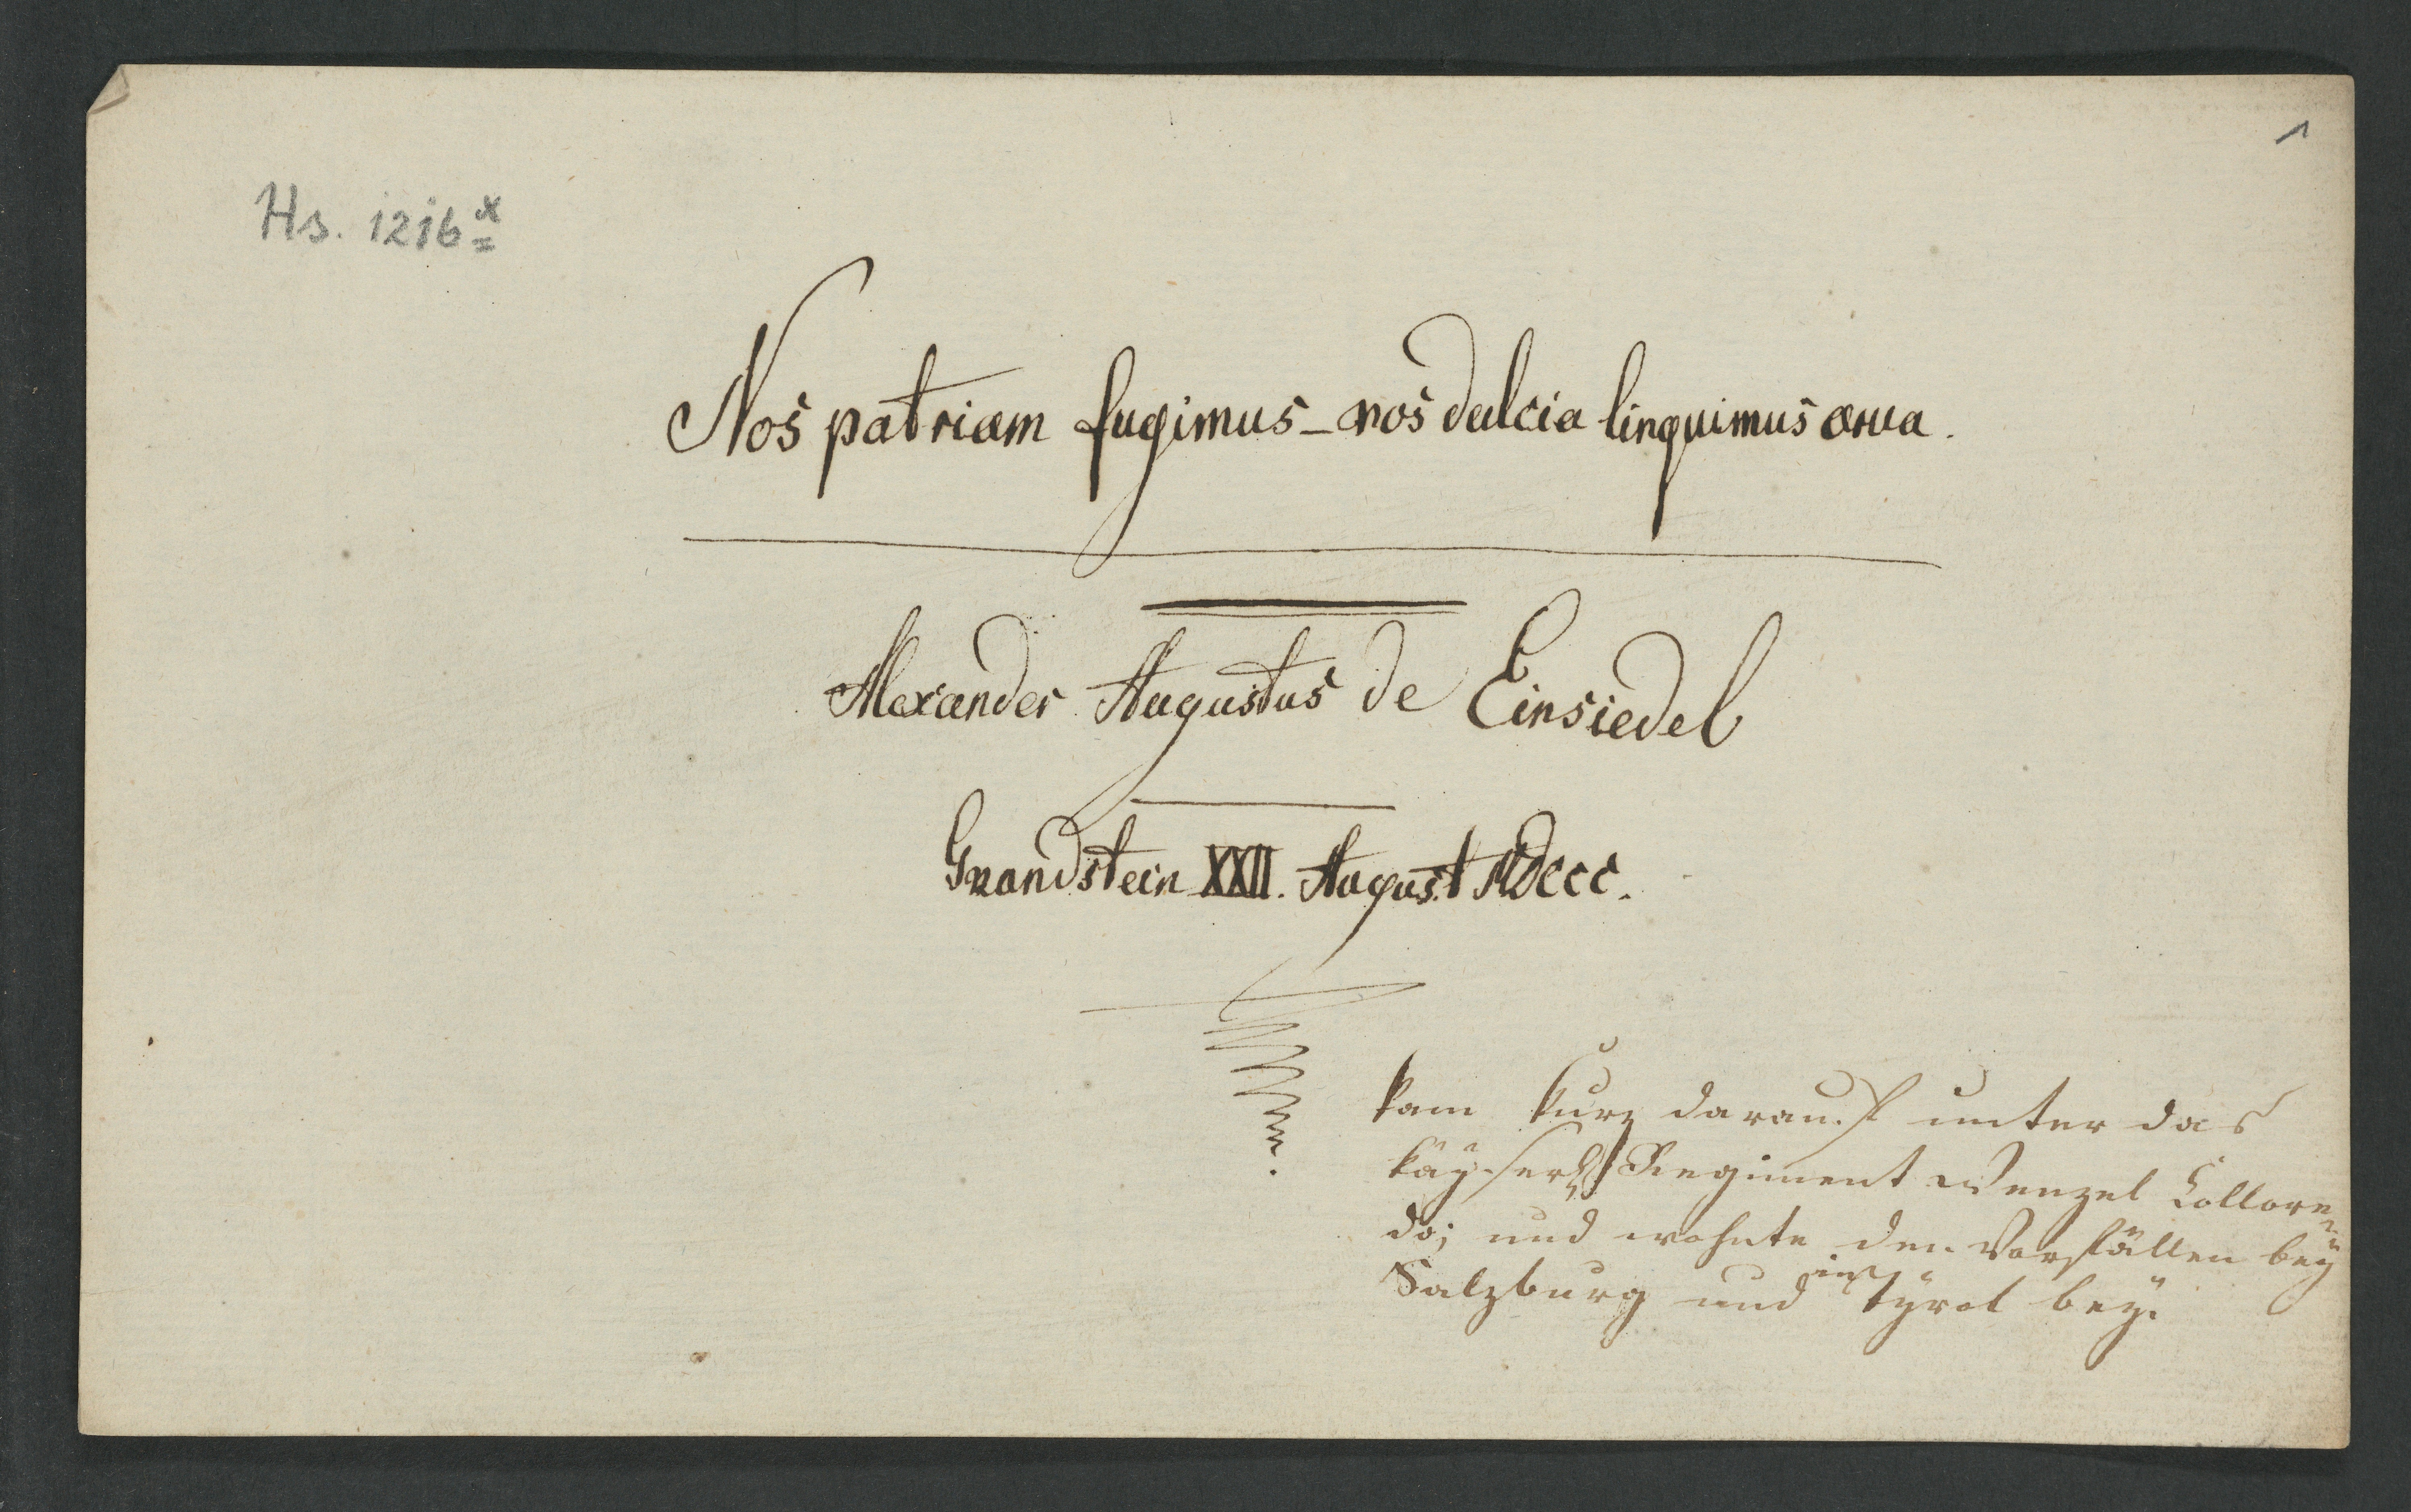 1
Hs. 1216x
Nos patriam fugimus - nos dulcia linquimus arva.
Alexander Augustus de Einsiedel
Gnandstein XXII. August MDCCC.
kam kurz darauf unter das
käyserl. Regiment Wenzel Collore=
do; und wohnte den Vorfällen bey
Salzburg und in Tÿrol beÿ.